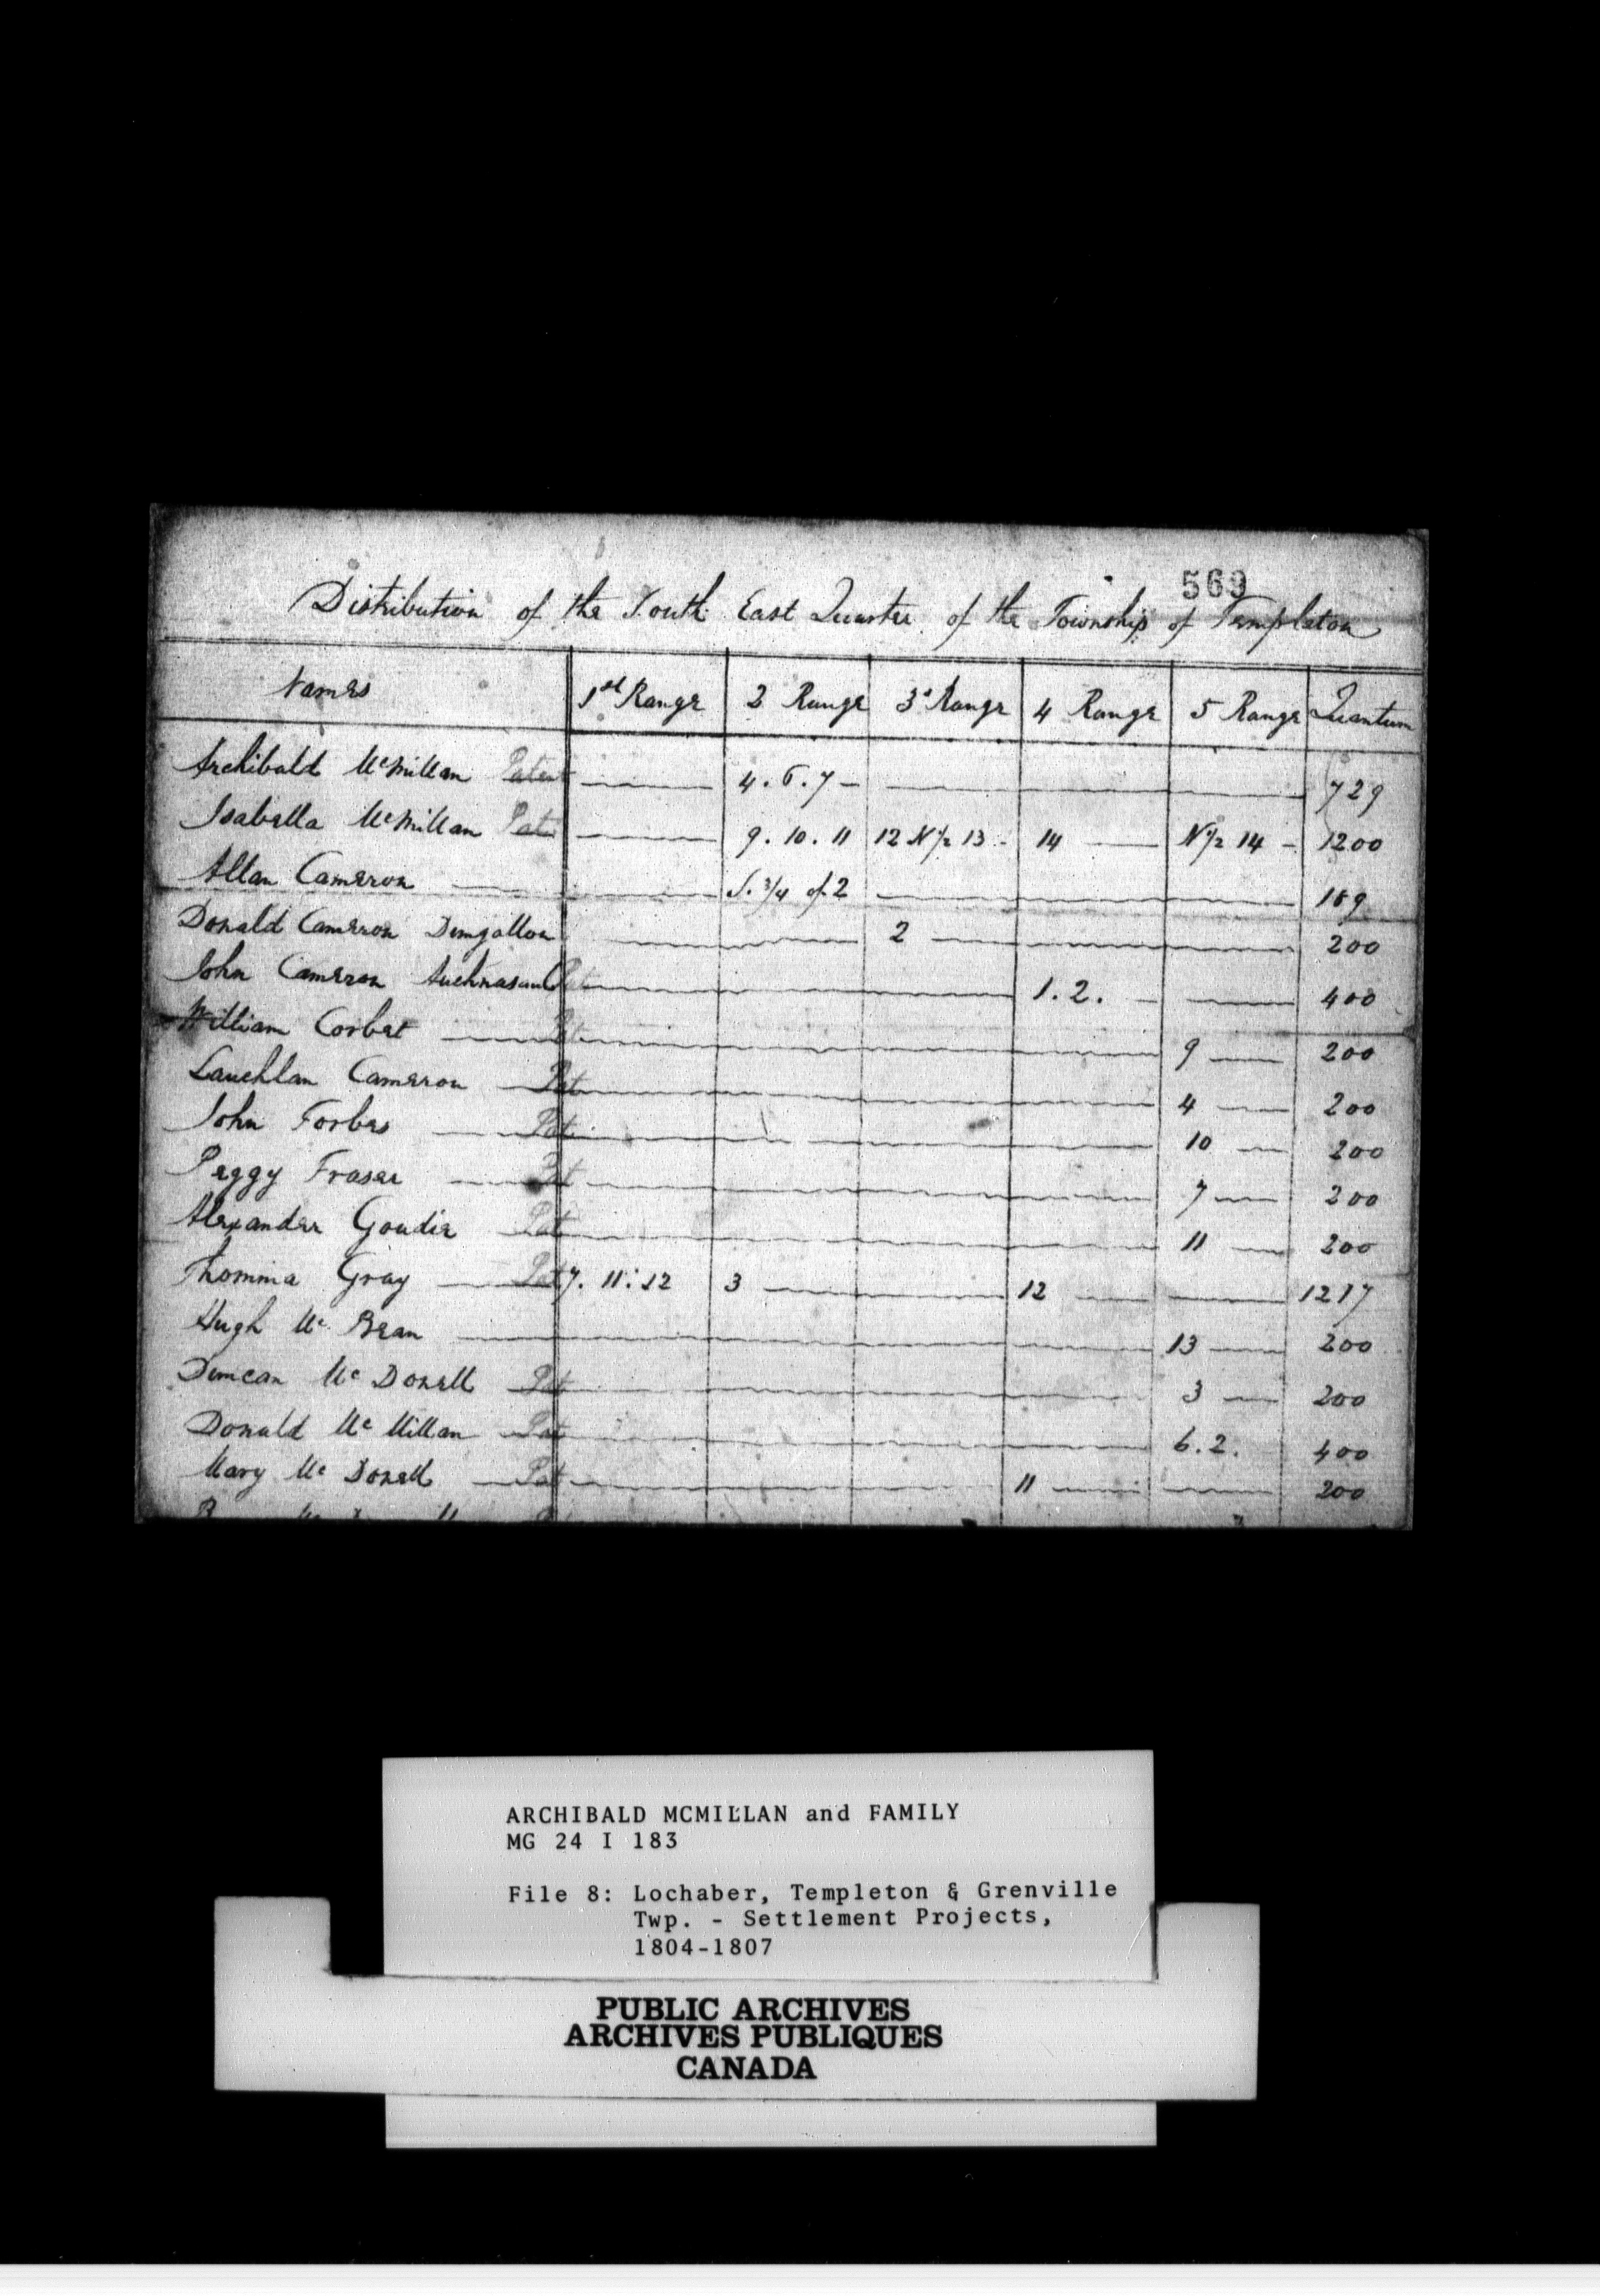 569
Distribution of the South East Quarter of the Township of Templeton
Names 1st Range 2 Range 3d Range 4 Range 5 Range Quantum
Archibald McMillan Patent 4. 6. 7 729
Isabella McMillan Pat 9. 10. 11 12 N 1/2 13 14 N 1/2 14 1200
Allan Cameron S. 3/4 of 2 189
Donald Cameron 2 200
John Cameron Pat 1. 2. 400
William Corbet Pat 9 200
Lauchlan Cameron Pat 4 200
John Forbes Pat 10 200
Peggy Fraser Pat 7 200
Alexander Goudie Pat 11 200
Thomina Gray Pat 7. 11. 12 3 12 1217
Hugh Mc Bean 13 200
Duncan Mc Donell Pat 3 200
Donald Mc Millan Pat 6. 2. 400
Mary Mc Donell Pat 11 200
ARCHIBALD MCMILLAN and FAMILY
MG 24 I 183
File 8: Lochaber, Templeton & Grenville
Twp. - Settlement Projects,
1804-1807
PUBLIC ARCHIVES
ARCHIVES PUBLIQUES
CANADA